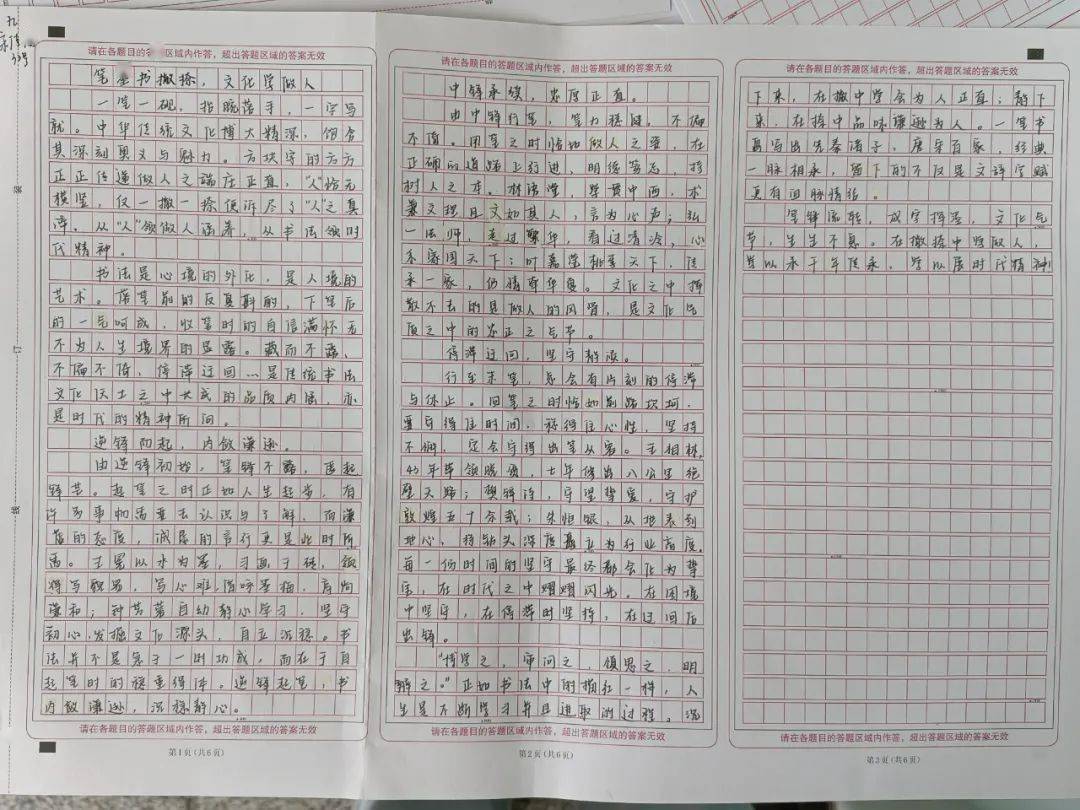 九
33号
装
订
线
请在各题目的答题区域内作答，超出答题区域的答案无效
笔 书撇捺，文化学做人
一笔一砚，指腕落手，一字写
就。中华传统文化博大精深，饱含
其深刻奥义与魅力。方块字的方方
正正传递做人之端庄正直，“人”恰无
横竖，仅一撇一捺便诉尽了“人”之真
谛。从“人”领做人涵养，从书法领时
代精神。
书法是心境的外化，是人境的
艺术。落笔前的反复斟酌，下笔后
的一气呵成，收笔时的自信满怀无
不为人生境界的显露。藏而不露、
不偏不倚，停滞迂回…是传统书法
文化沃土之中共成的品质内涵，亦
是时代的精神所向。
逆锋防起，内敛谦逊。
由逆锋初始，笔锋不露，匿起
锋芒。起笔之时正如人生起步，有
许多事物需要去认识与了解，而谦
卑的态度，诚恳的言行更是此时所
需。王冕以水为墨，习画于砖，领
将写
谦和；钟芳蓉自幼静心学习，坚守
初心，发掘文化源头，自立沉稳。书
法并不是急于一时功成，而在于自
起笔时的稳重得体。逆锋起笔，书
内敛谦逊，沉稳静心。
请在各题目的答题区域内作答，超出答题区域的答案无效
第1页(共6页)
请在各题目的答题区域内作答，超出答题区域的答案无效
中锋承续，忠厚正直。
由中锋行笔，笔力稳健。不偏
不倚。用笔之时恰如做人之举，在
正确的道路上行进，明德笃志，持
树人之本。林语堂，学贯中西，术
兼文理且文如其人，言为心声；弘
一法师，走过繁华，看过清冷，心
系家国天下；叶嘉莹桃李天下，传
承一家，仍情牵华夏。文化之中挥
散不去的是做人的风骨，是文化气
质之中的忠正之气节。
停滞迂回，坚守静渡。
行至末笔，总会有片刻的停滞
与休止。回笔之时恰如前路坎坷，
要守得住时间，稳得住心性，坚持
不懈，定会守得出笔从容。毛相林，
43年带领脱贫，七年修出八公里绝
壁天路；樊锦诗，守望挚爱，守护
敦煌五十余载；朱恒银，从地表到
地心，将钻头深度矗立为行业高度。
每一份时间的坚守最终都会化为挚
宝，在时代之中熠熠闪光。在困境
中坚守，在停滞时坚持，在迂回后
出锋。
“博学之，审问之，慎思之，明
辨之。”正如书法中的横红一样，人
生是不断学习并且进取的过程。沉
请在各题目的答题区域内作答，超出答题区域的答案无效
第2页(共6页)
请在各题目的答题区域内作答，超出答题区域的答案无效
下来，在撇中学会为人正直；静下
来，在捺中品味谦逊为人。一笔书
写出先秦诸子，唐宋百家，经典
一脉相承，留下的不仅是文译字赋
更有血脉情结。
笔锋流转，成字挥墨，文化气
节，生生不息。在撇捺中学做人，
学以承千年传承，学以展时代精神！
请在各题目的答题区域内作答，超出答题区域的答案无效
第3页(共6页)